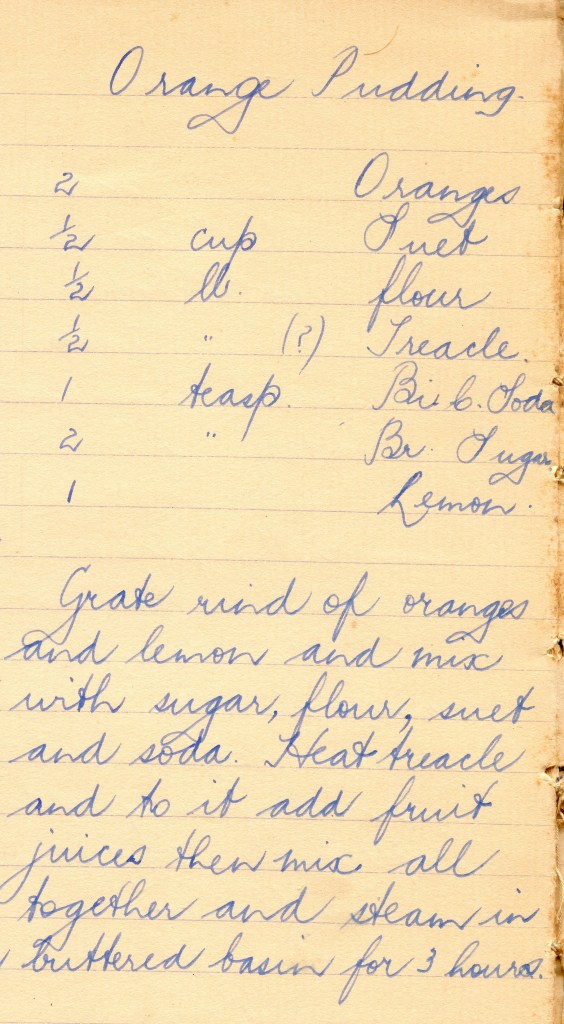 Orange Pudding.
2 Oranges
½ cup Suet
½ lb. flour
½ " (?) Treacle.
1 teasp. Bi. C. Soda
2 " Br. Sugar
1 Lemon.
Grate rind of oranges
and lemon and mix
with sugar, flour, suet
and soda. Heat treacle
and to it add fruit
juices then mix all
together and steam in
buttered basin for 3 hours.